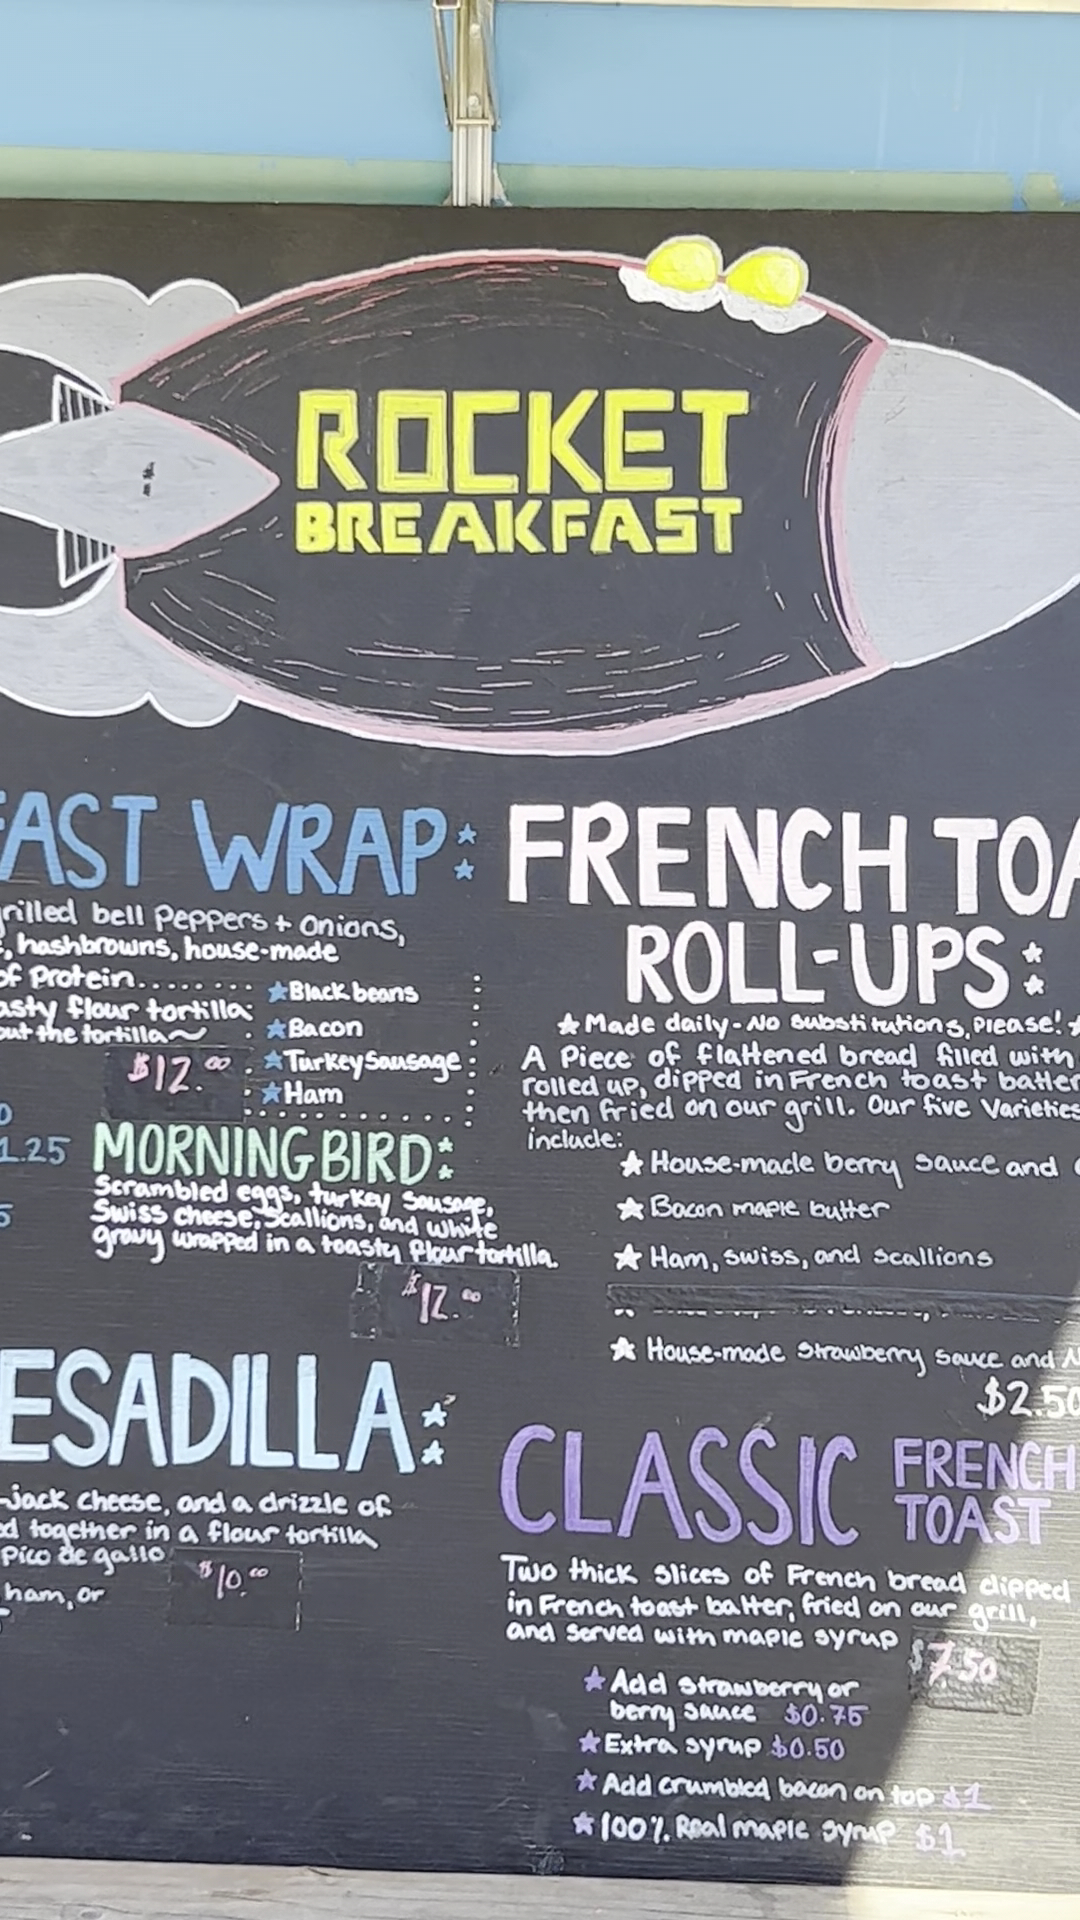 ROCKET
BREAKFAST
FAST WRAP:
grilled bell peppers + onions,
, hashbrowns, house-made
of protein........
asty flour tortilla:
out the tortilla~
$12.00
★Black beans
★Bacon
★Turkey Sausage
★Ham
1.25
MORNING BIRD:
Scrambled eggs, turkey sausage,
Swiss cheese, scallions, and white
gravy wrapped in a toasty flour tortilla.
$12.00
ESADILLA:
-jack cheese, and a drizzle of
ed together in a flour tortilla
Pico de gallo
$10.00
ham, or
FRENCH TOA
ROLL-UPS:
★Made daily-No substitutions, please!★
A piece of flattened bread filled with
rolled up, dipped in French toast batter
then fried on our grill. Our five varieties
include:
★ House-made berry sauce and
★ Bacon maple butter
★ Ham, swiss, and scallions
★ House-made strawberry sauce and N
$2.50
CLASSIC FRENCH
TOAST
Two thick slices of French bread dipped
in French toast batter, fried on our grill,
and served with maple syrup
$7.50
★ Add strawberry or
berry sauce $0.75
★ Extra syrup $0.50
★ Add crumbled bacon on top $1
★ 100% Real maple syrup $1